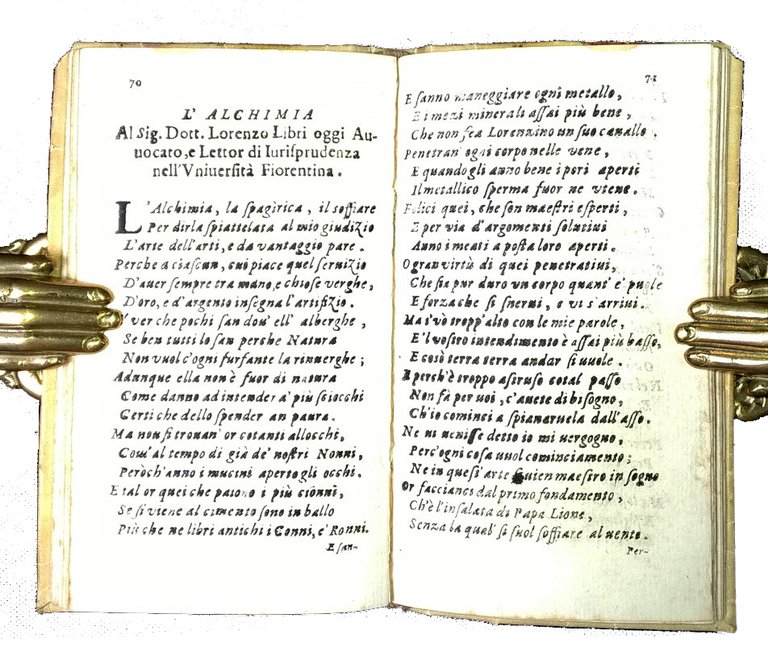 70
L' ALCHIMIA
Al Sig. Dott. Lorenzo Libri oggi Au-
uocato, e Lettor di Iurisprudenza
nell'Vniuersità Fiorentina.
L'Alchimia, la spagirica, il soffiare
Per dirla spiattelata al mio giudizio
L'arte dell'arti, e da vantaggio pare.
Perche a ciascun, cui piace quel seruizio
D'auer sempre tra mano, e chiose verghe,
D'oro, e d'argento insegna l'artifizio.
ver che pochi san dou' ell' alberghe,
Se ben tutti lo san perche Natura
Non vuol c'ogni furfante la rinuerghe;
Adunque ella non è fuor di natura
Come danno ad intender a' più sciocchi
Certi che dello spender an paura.
Ma non si trouan' or cotanti allocchi,
Com' al tempo di già de' nostri Nonni,
Peròch'anno i mucini aperto gli occhi.
E tal or quei che paiono i più cionni,
Se si viene al cimento sono in ballo
Più che ne libri antichi i Conni, e' Ronni.
E san-
71
E sanno maneggiare ogni metallo,
E i mezi minerali assai più bene,
Che non fea Lorenzino un suo cauallo.
Penetran ogni corpo nelle vene,
E quando gli anno bene i pori aperti
Il metallico sperma fuor ne viene.
Felici quei, che son maestri esperti,
E per via d'argomenti solutiui
Anno i meati a posta loro aperti.
O gran virtù di quei penetratiui,
Che sia pur duro un corpo quant' e' puole
E forza che si snerui, e vi s'arriui.
Ma s'vò tropp'alto con le mie parole,
E'l vostro intendimento è assai più basso,
E così terra terra andar si vuole.
E perch'è troppo astruso cotal passo
Non fà per uoi, c'auete di bisogno,
Ch'io cominci a spianaruela dall'asso.
Ne ui uenisse detto io mi uergogno,
Perc'ogni cosa uuol cominciamento;
Ne in quest'arte maestro in sogno
Or facciamci dal primo fondamento,
Ch'è l'insalata di Papa Lione,
Senza la qual' si suol soffiare al uento.
Per-